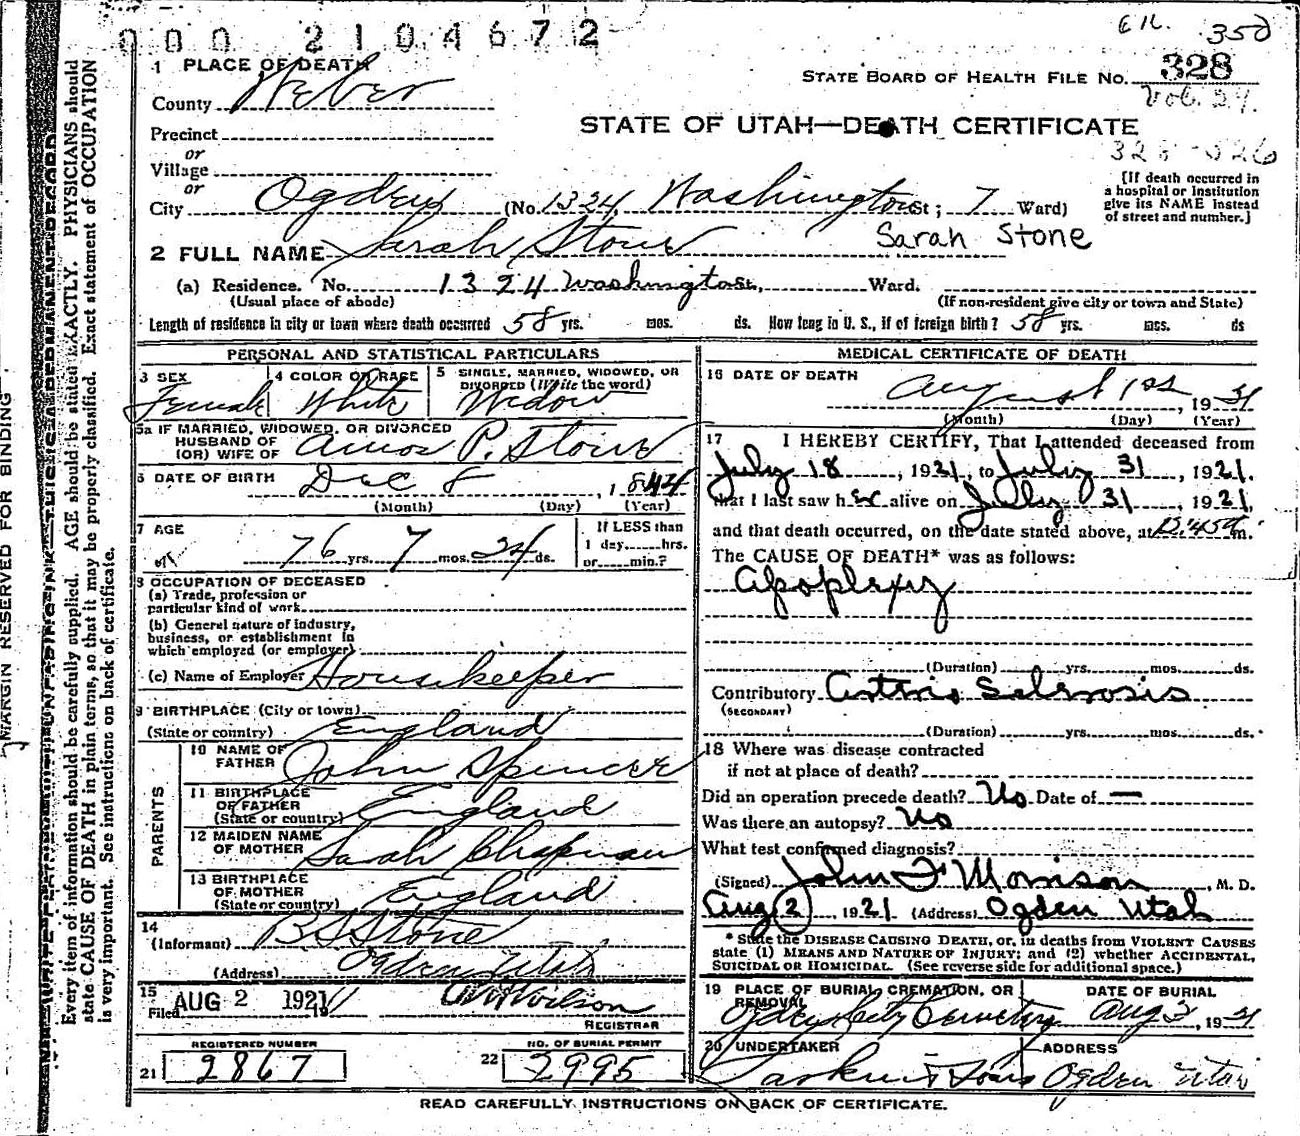 000 2104672
EK. 350
1 PLACE OF DEATH
STATE BOARD OF HEALTH FILE NO. 328
County Weber
Vol. 24.
Precinct
STATE OF UTAH—DEATH CERTIFICATE
or
Village
or
City Ogden (No. 1324 Washington St; 7 Ward)
[If death occurred in
a hospital or institution
give its NAME instead
of street and number.]
2 FULL NAME Sarah Stone
Sarah Stone
(a) Residence. No. 1324 Washington St., Ward.
(Usual place of abode) (If non-resident give city or town and State)
Length of residence in city or town where death occurred 58 yrs. mos. ds. How long in U. S., if of foreign birth? 58 yrs. mos. ds
PERSONAL AND STATISTICAL PARTICULARS
3 SEX
Female
4 COLOR OR RACE
White
5 SINGLE, MARRIED, WIDOWED, OR
DIVORCED (Write the word)
Widow
5a IF MARRIED, WIDOWED, OR DIVORCED
HUSBAND OF
(OR) WIFE OF Amos P. Stone
6 DATE OF BIRTH Dec 8, 1844
(Month) (Day) (Year)
7 AGE
76 yrs. 7 mos. 24 ds.
If LESS than
1 day......hrs.
or......min.?
8 OCCUPATION OF DECEASED
(a) Trade, profession or
particular kind of work
(b) General nature of industry,
business, or establishment in
which employed (or employer)
(c) Name of Employer Housekeeper
9 BIRTHPLACE (City or town)
(State or country) England
PARENTS
10 NAME OF
FATHER John Spencer
11 BIRTHPLACE
OF FATHER
(State or country) England
12 MAIDEN NAME
OF MOTHER Sarah Chapman
13 BIRTHPLACE
OF MOTHER
(State or country) England
14
(Informant) B S Stone
(Address) Ogden Utah
15
Filed AUG 2 1921
REGISTRAR
REGISTERED NUMBER
21 2867
NO. OF BURIAL PERMIT
22 2995
MEDICAL CERTIFICATE OF DEATH
16 DATE OF DEATH August 1st, 19 21
(Month) (Day) (Year)
17 I HEREBY CERTIFY, That I attended deceased from
July 18, 1921, to July 31, 1921.
that I last saw her alive on July 31, 1921,
and that death occurred, on the date stated above, at 12.45 a m.
The CAUSE OF DEATH* was as follows:
Apoplexy
(Duration) yrs. mos. ds.
Contributory Arterio Sclerosis
(SECONDARY)
(Duration) yrs. mos. ds.
18 Where was disease contracted
if not at place of death?
Did an operation precede death? No Date of —
Was there an autopsy? No
What test confirmed diagnosis?
(Signed) John F Morrison, M. D.
Aug 2, 1921 (Address) Ogden Utah
* State the DISEASE CAUSING DEATH, or, in deaths from VIOLENT CAUSES
state (1) MEANS AND NATURE OF INJURY; and (2) whether ACCIDENTAL,
SUICIDAL OR HOMICIDAL. (See reverse side for additional space.)
19 PLACE OF BURIAL, CREMATION, OR
REMOVAL
Ogden City Cemetery
DATE OF BURIAL
Aug 3, 1921
20 UNDERTAKER
Larkin & Sons
ADDRESS
Ogden Utah
READ CAREFULLY INSTRUCTIONS ON BACK OF CERTIFICATE.
MARGIN RESERVED FOR BINDING
Every item of information should be carefully supplied. AGE should be stated EXACTLY. PHYSICIANS should
state CAUSE OF DEATH in plain terms, so that it may be properly classified. Exact statement of OCCUPATION
is very important. See instructions on back of certificate.